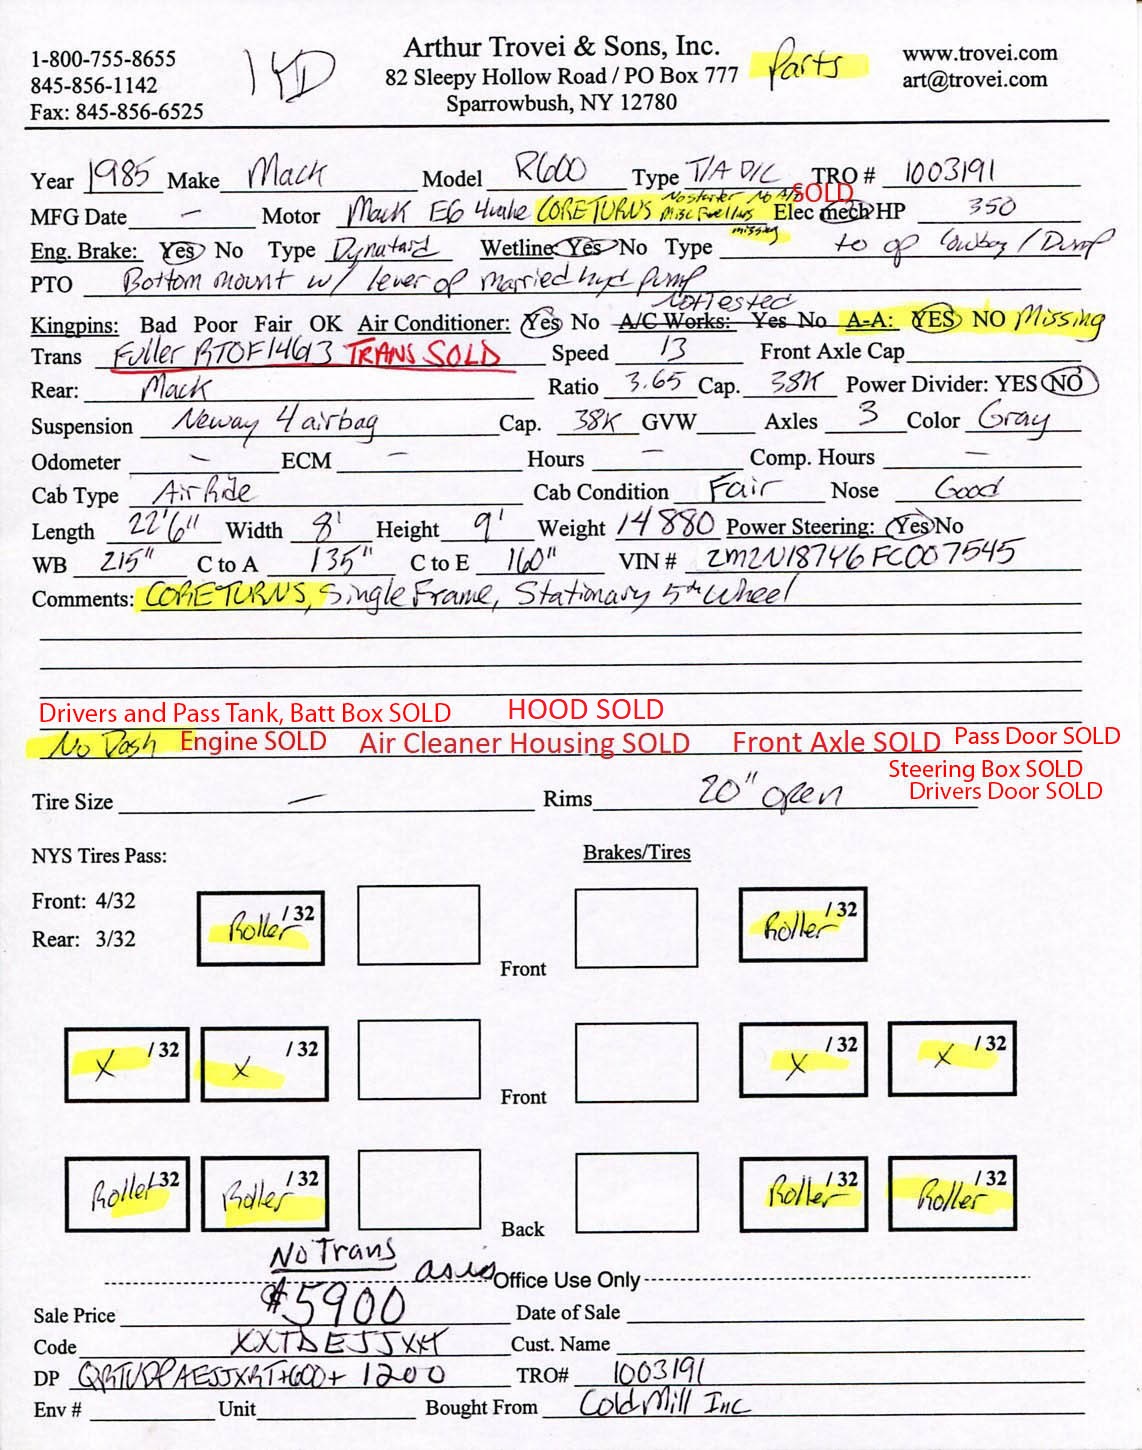 1-800-755-8655 Arthur Trovei & Sons, Inc. www.trovei.com
845-856-1142 1YD 82 Sleepy Hollow Road / PO Box 777 Parts art@trovei.com
Fax: 845-856-6525 Sparrowbush, NY 12780
Year 1985 Make Mack Model R600 Type T/A D/C TRO # 1003191
No starter No A/C SOLD
MFG Date - Motor Mack E6 4valve CORETURNS Misc Fuel lines missing Elec mech HP 350
Eng. Brake: Yes No Type Dynatard Wetline: Yes No Type to op Lowboy / Dump
PTO Bottom mount w/ lever op married hyd pump
Not Tested
Kingpins: Bad Poor Fair OK Air Conditioner: Yes No A/C Works: Yes No A-A: YES NO Missing
Trans Fuller RTOF14613 TRANS SOLD Speed 13 Front Axle Cap
Rear: Mack Ratio 3.65 Cap. 38K Power Divider: YES NO
Suspension Neway 4 airbag Cap. 38K GVW Axles 3 Color Gray
Odometer - ECM - Hours - Comp. Hours -
Cab Type Air Ride Cab Condition Fair Nose Good
Length 22'6" Width 8' Height 9' Weight 14880 Power Steering: Yes No
WB 215" C to A 135" C to E 160" VIN # 2M2N187Y6FC007545
Comments: CORETURNS, Single Frame, Stationary 5th Wheel
Drivers and Pass Tank, Batt Box SOLD HOOD SOLD
No Dash Engine SOLD Air Cleaner Housing SOLD Front Axle SOLD Pass Door SOLD
Steering Box SOLD
Drivers Door SOLD
Tire Size - Rims 20" open
NYS Tires Pass: Brakes/Tires
Front: 4/32 Roller /32 Roller /32
Rear: 3/32
Front
X /32 X /32 X /32 X /32
Front
Roller 32 Roller /32 Roller /32 Roller /32
Back
No Trans
as is Office Use Only
Sale Price $5900 Date of Sale
Code XXTDEJJXXT Cust. Name
DP + 1200 TRO# 1003191
Env # Unit Bought From Cold Mill Inc